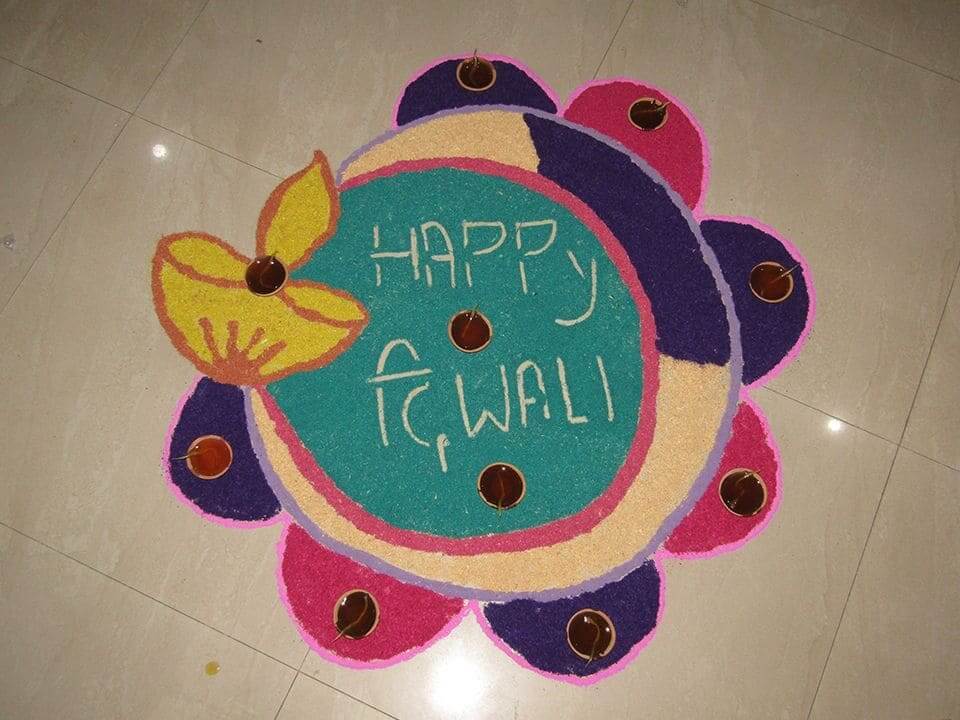 HAPPy
दिWALI